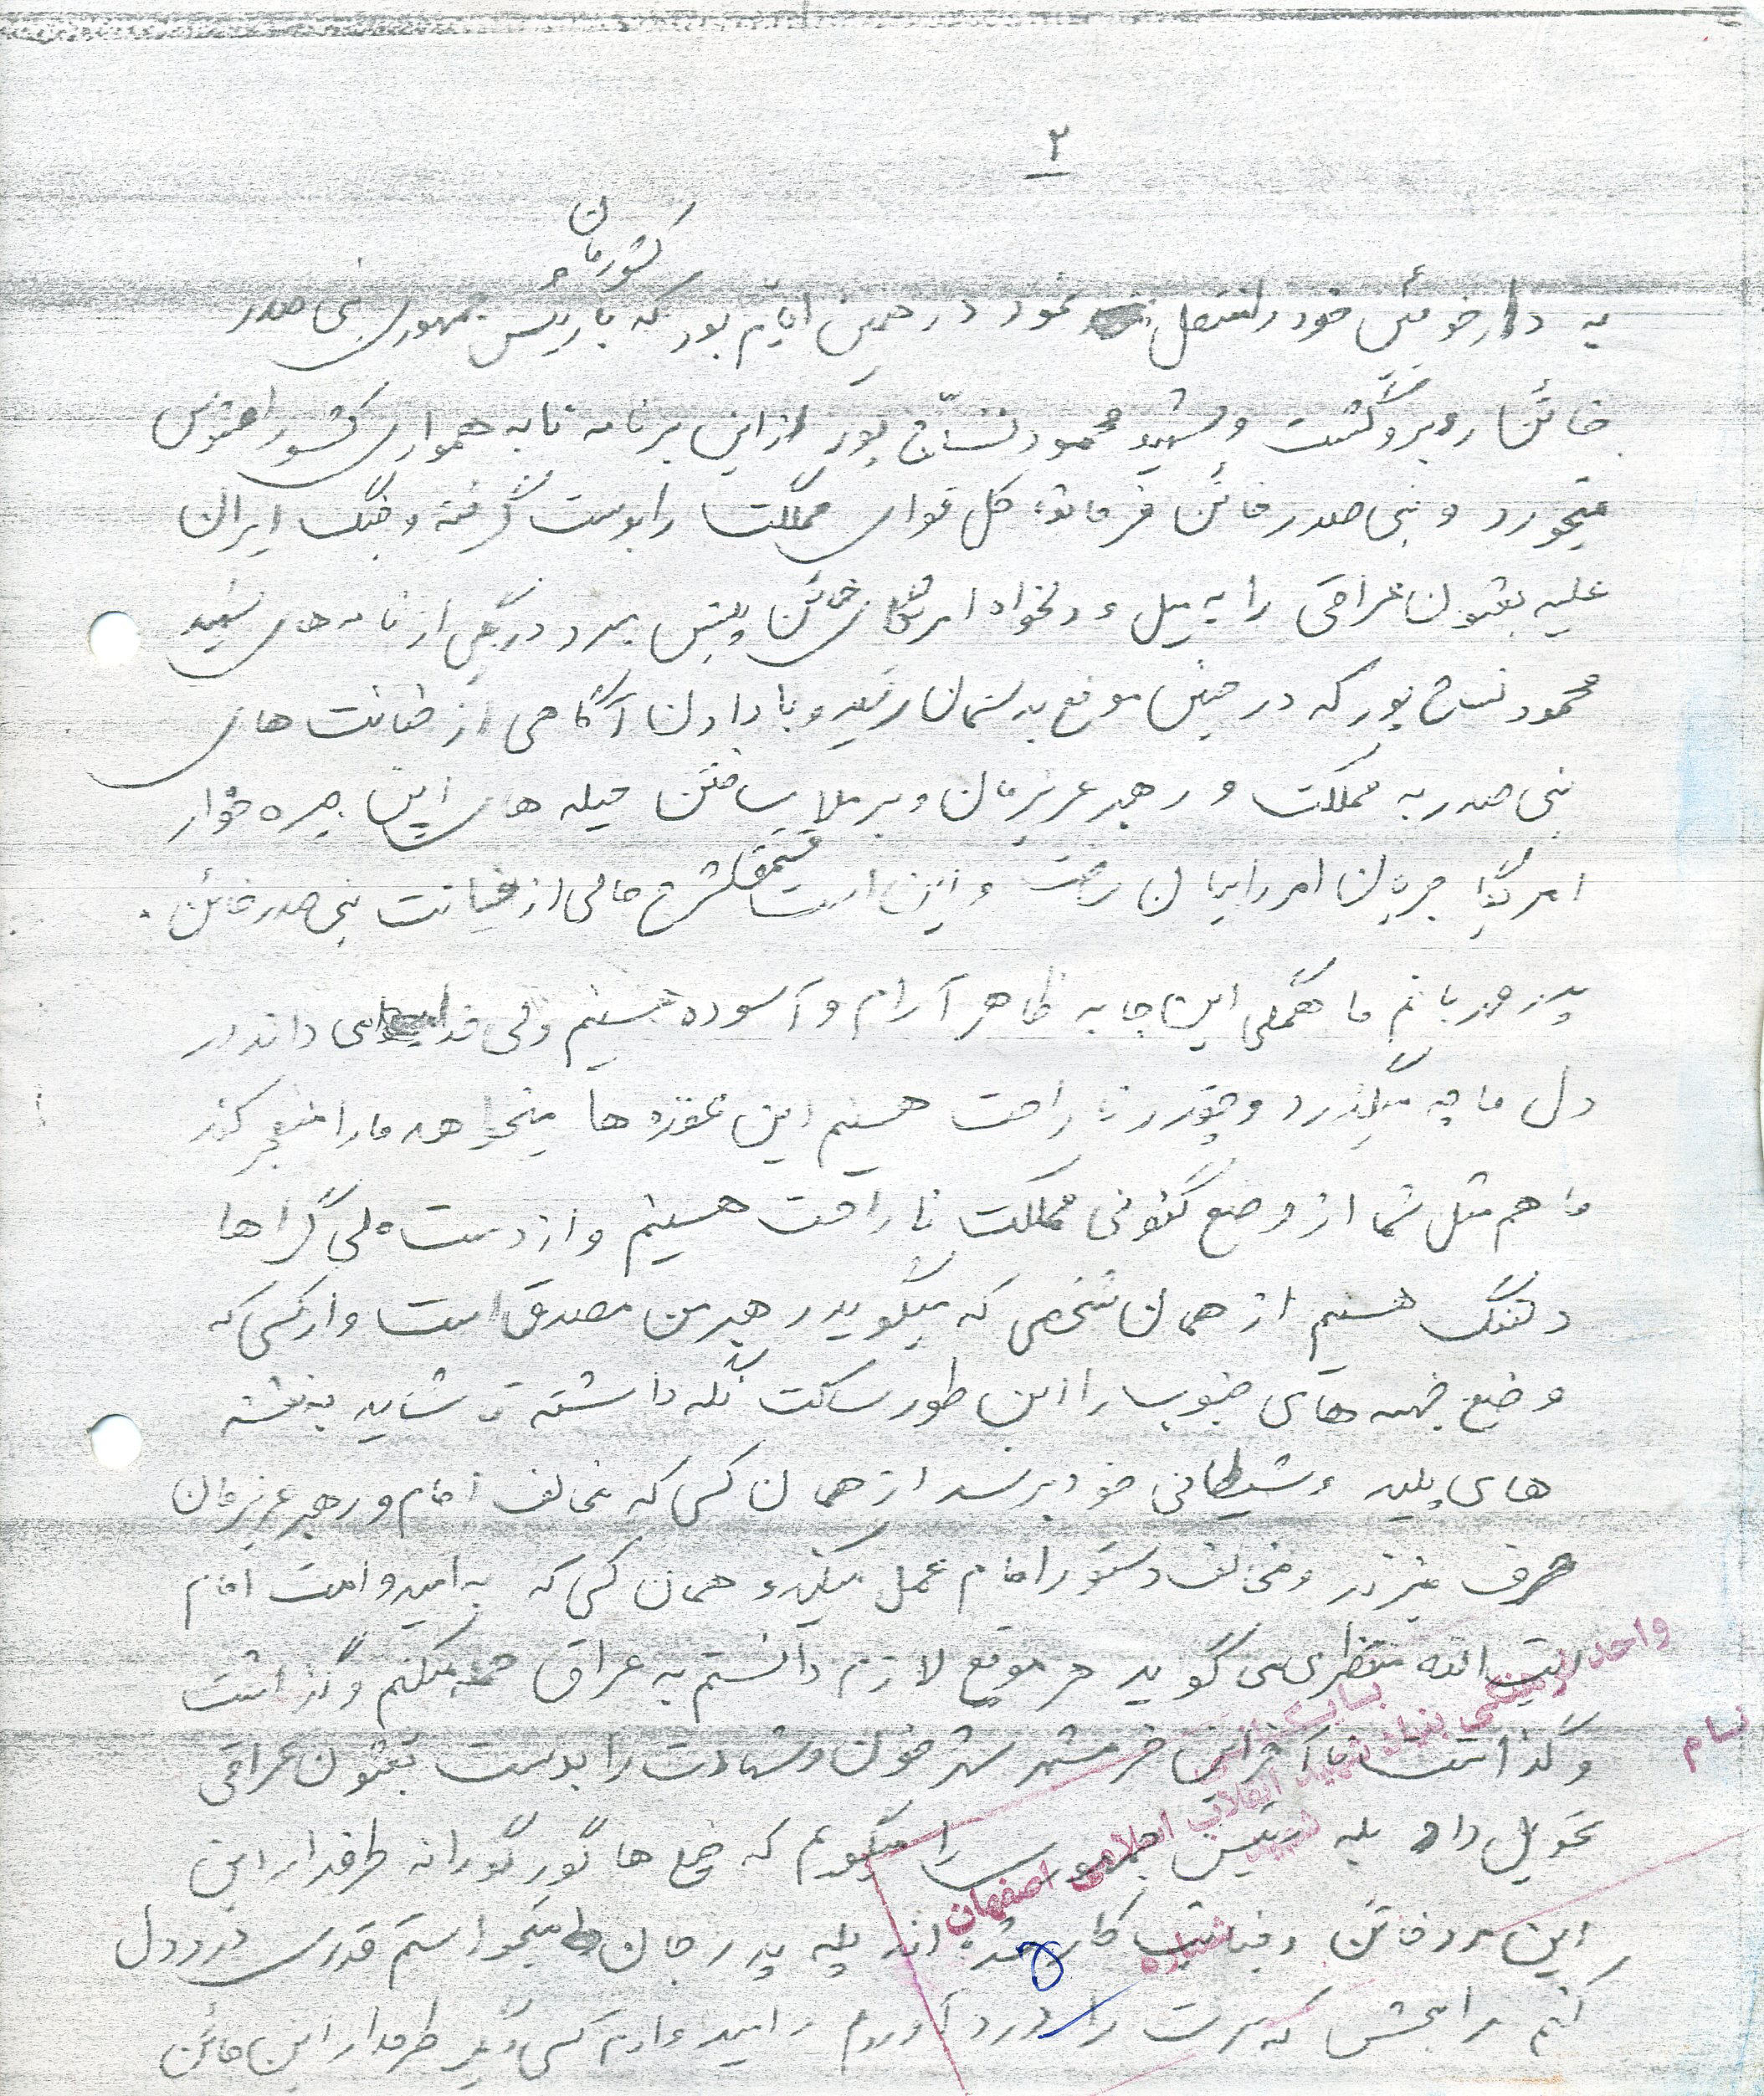 ۲
کشورمان
به دارخوئین خود را منتقل نمود در همین ایام بود که با رئیس جمهوری بنی صدر
خائن رو برو گشت و شهید محمود نساج پور از این برنامه نا به همواری کشور افسوس
میخورد و بنی صدر خائن فرمانده کل قوای مملکت را بدست گرفته و جنگ ایران
علیه بعثیون عراقی را به میل و دلخواه امریکای خائن پیش میبرد در یکی از نامه های شهید
محمود نساج پور که در چنین موقع بدستمان رسید و با دادن آگاهی از خیانت های
بنی صدر به مملکت و رهبر عزیزمان و بر ملا ساختن حیله های این جیره خوار
امریکا جریان امر را بیان ساخت و این است قسمتی شرح حالی از خیانت بنی صدر خائن .
پدر مهربانم ما همگی این جا به ظاهر آرام و آسوده هستیم ولی خدا می داند در
دل ما چه میگذرد و چقدر ناراحت هستیم این عقده ها میخواهد ما را منفجر کند
ما هم مثل شما از وضع کنونی مملکت ناراحت هستیم و از دست ملی گراها
دلتنگ هستیم از همان شخصی که میگوید رهبر من مصدق است و از کسی که
وضع جبهه های جنوب را این طور ساکت نگه داشته تا شاید به نقشه
های پلید و شیطانی خود برسد از همان کسی که مخالف امام و رهبر عزیزمان
حرف میزند و مخالف دستور امام عمل میکند و همان کسی که به امید و امت امام
آیت الله منتظری می گوید هر موقع لازم دانستم به عراق حمله میکنم و گذاشت
و گذاشت تا آخر این خرمشهر شهر خون و شهادت را بدست بعثیون عراقی
تحویل داد بله رئیس جمهور را میگویم که خیلی ها کور کورانه طرفدار این
این مرد خائن و خیانت کار شده اند بله پدر جان میخواستم قدری درد دل
کنم مرا ببخش که سرت را درد آوردم امید وارم کسی دیگر طرفدار این خائن
واحد فرهنگی بنیاد شهید انقلاب اسلامی اصفهان
شماره